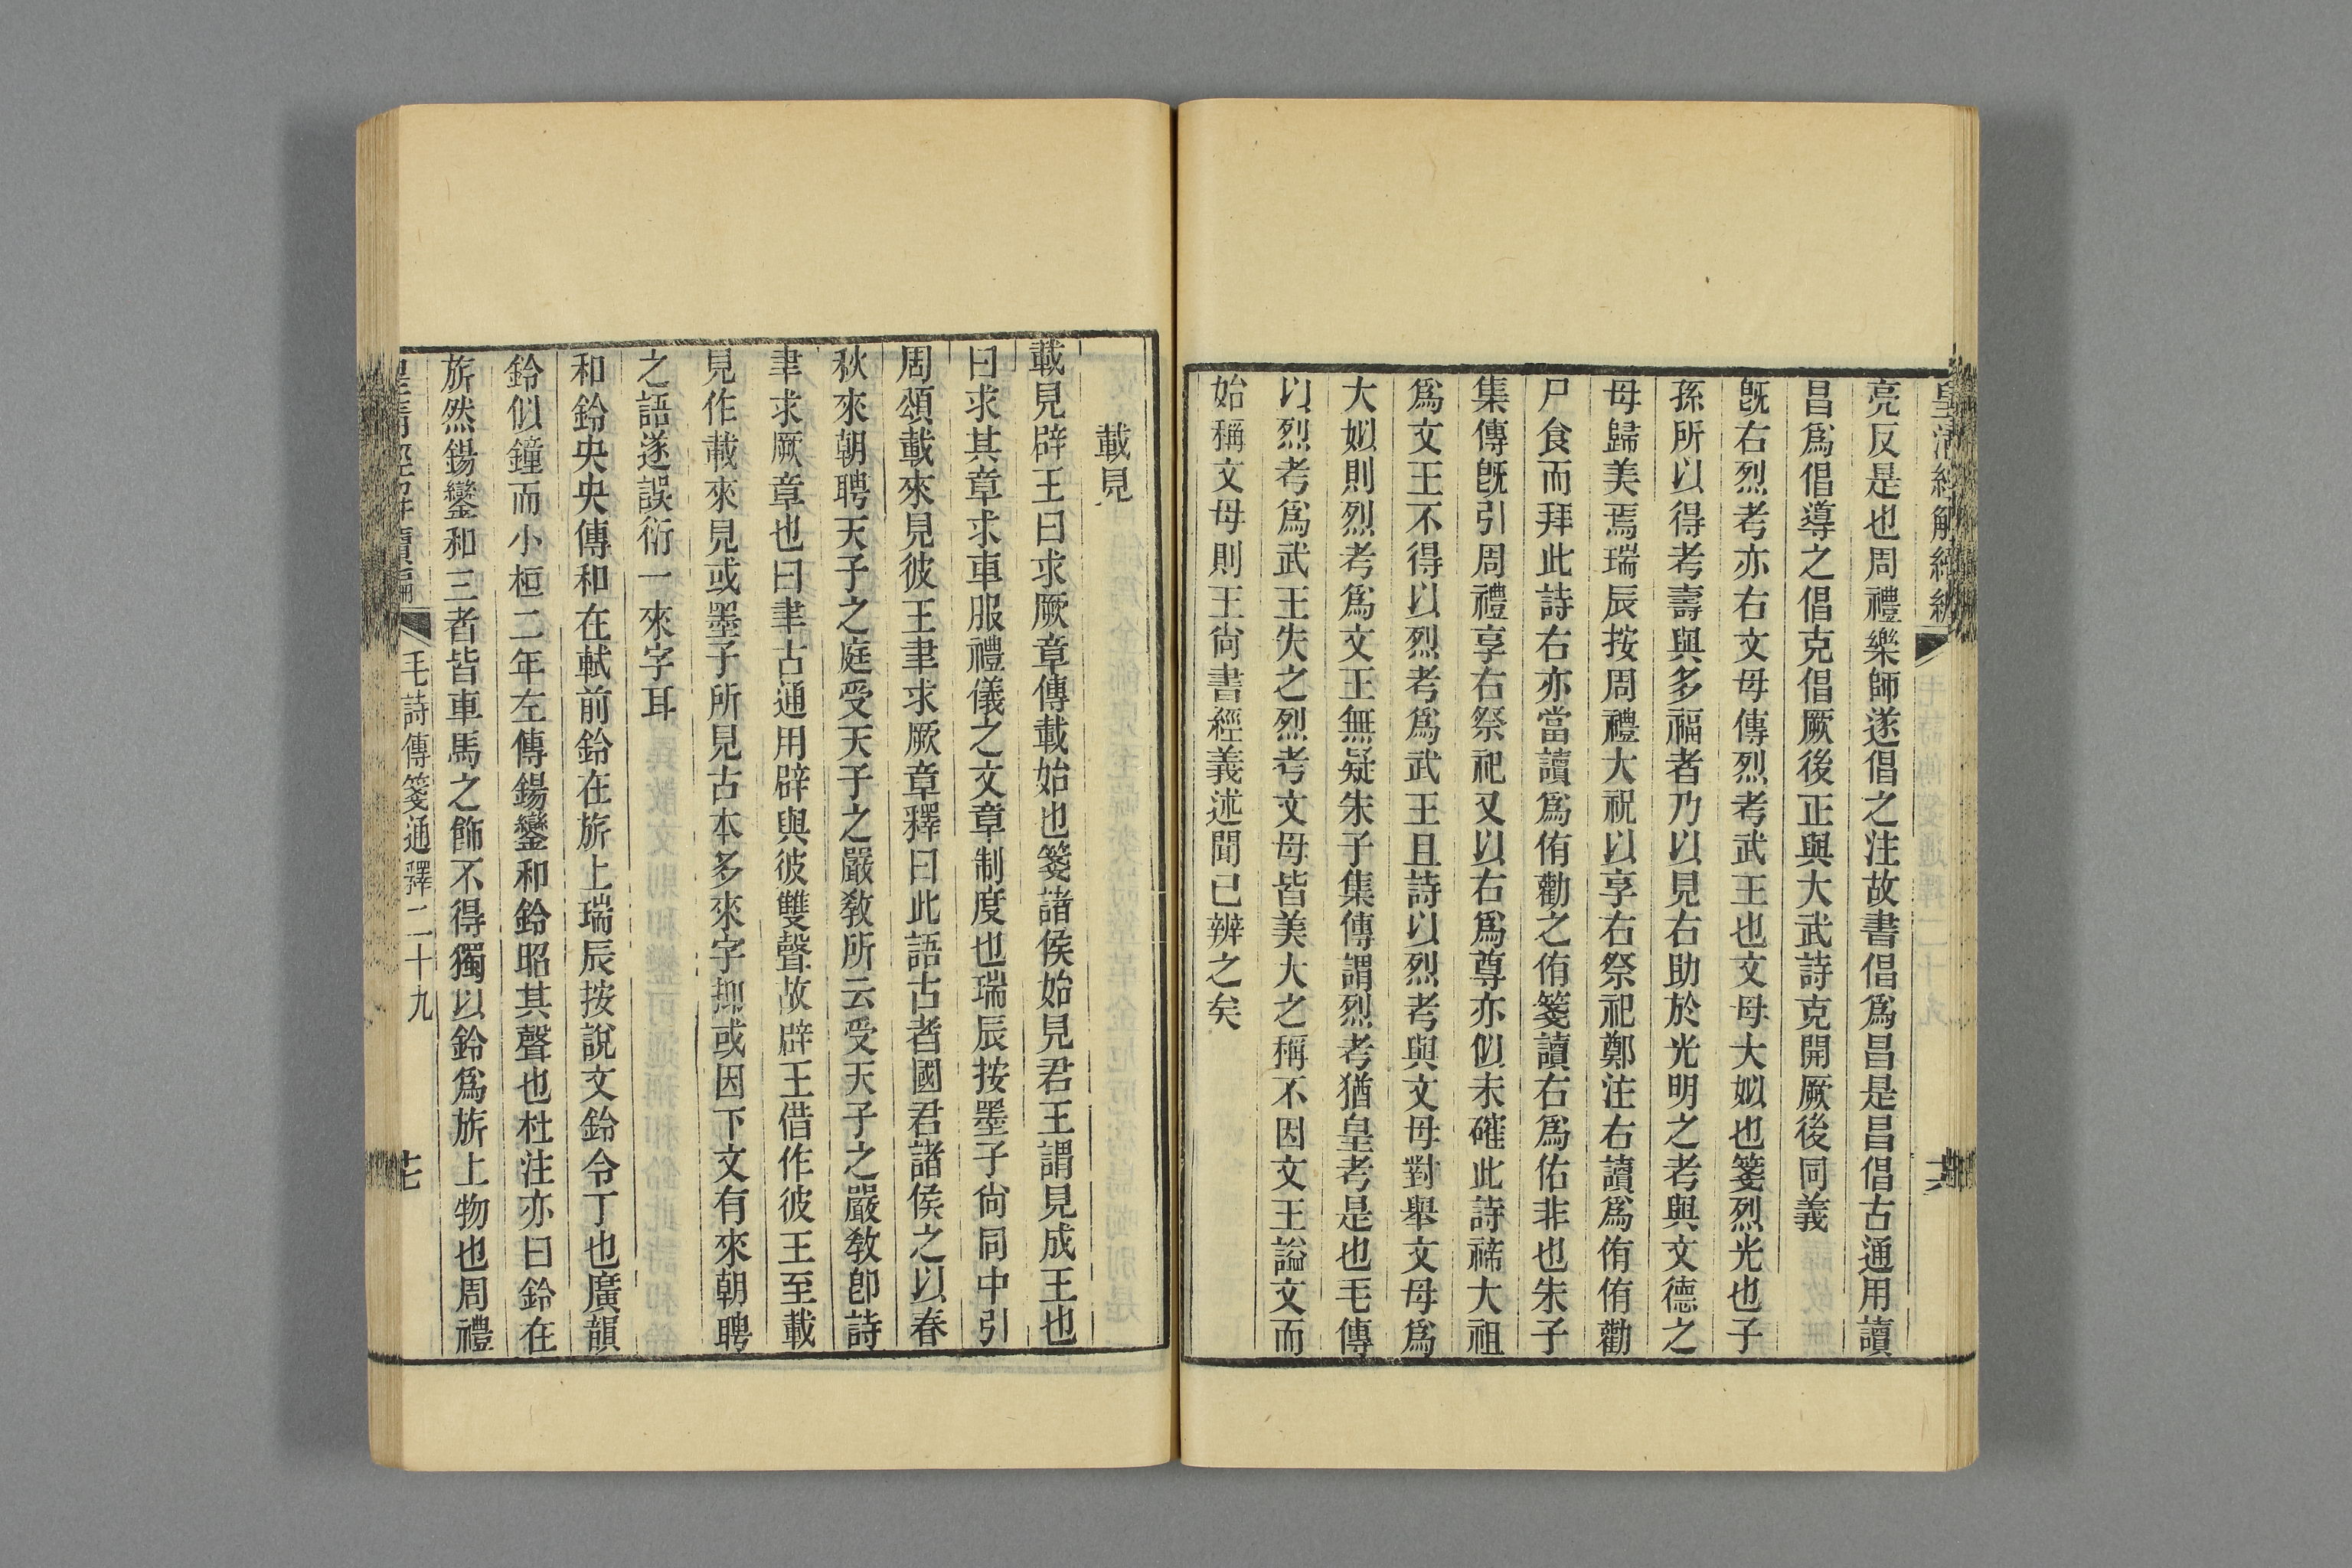 皇清經解續編
亮反是也周禮樂師遂倡之注故書倡爲昌是昌倡古通用讀
昌爲倡導之倡克倡厥後正與大武詩克開厥後同義
旣右烈考亦右文母傳烈考武王也文母大姒也箋烈光也子
孫所以得考壽與多福者乃以見右助於光明之考與文德之
母歸美焉瑞辰按周禮大祝以享右祭祀鄭注右讀爲侑侑勸
尸食而拜此詩右亦當讀爲侑勸之侑箋讀右爲佑非也朱子
集傳旣引周禮享右祭祀又以右爲尊亦似未確此詩禘大祖
爲文王不得以烈考爲武王且詩以烈考與文母對舉文母爲
大姒則烈考爲文王無疑朱子集傳謂烈考猶皇考是也毛傳
以烈考爲武王失之烈考文母皆美大之稱不因文王謚文而
始稱文母則王尙書經義述聞已辨之矣
載見
載見辟王曰求厥章傳載始也箋諸侯始見君王謂見成王也
曰求其章求車服禮儀之文章制度也瑞辰按墨子尙同中引
周頌載來見彼王聿求厥章釋曰此語古者國君諸侯之以春
秋來朝聘天子之庭受天子之嚴敎所云受天子之嚴敎卽詩
聿求厥章也曰聿古通用辟與彼雙聲故辟王借作彼王至載
見作載來見或墨子所見古本多來字抑或因下文有來朝聘
之語遂誤衍一來字耳
和鈴央央傳和在軾前鈴在旂上瑞辰按說文鈴令丁也廣韻
鈴似鐘而小桓二年左傳鍚鸞和鈴昭其聲也杜注亦曰鈴在
旂然鍚鸞和三者皆車馬之飾不得獨以鈴爲旂上物也周禮
皇淸經解續編 毛詩傳箋通釋二十九 七